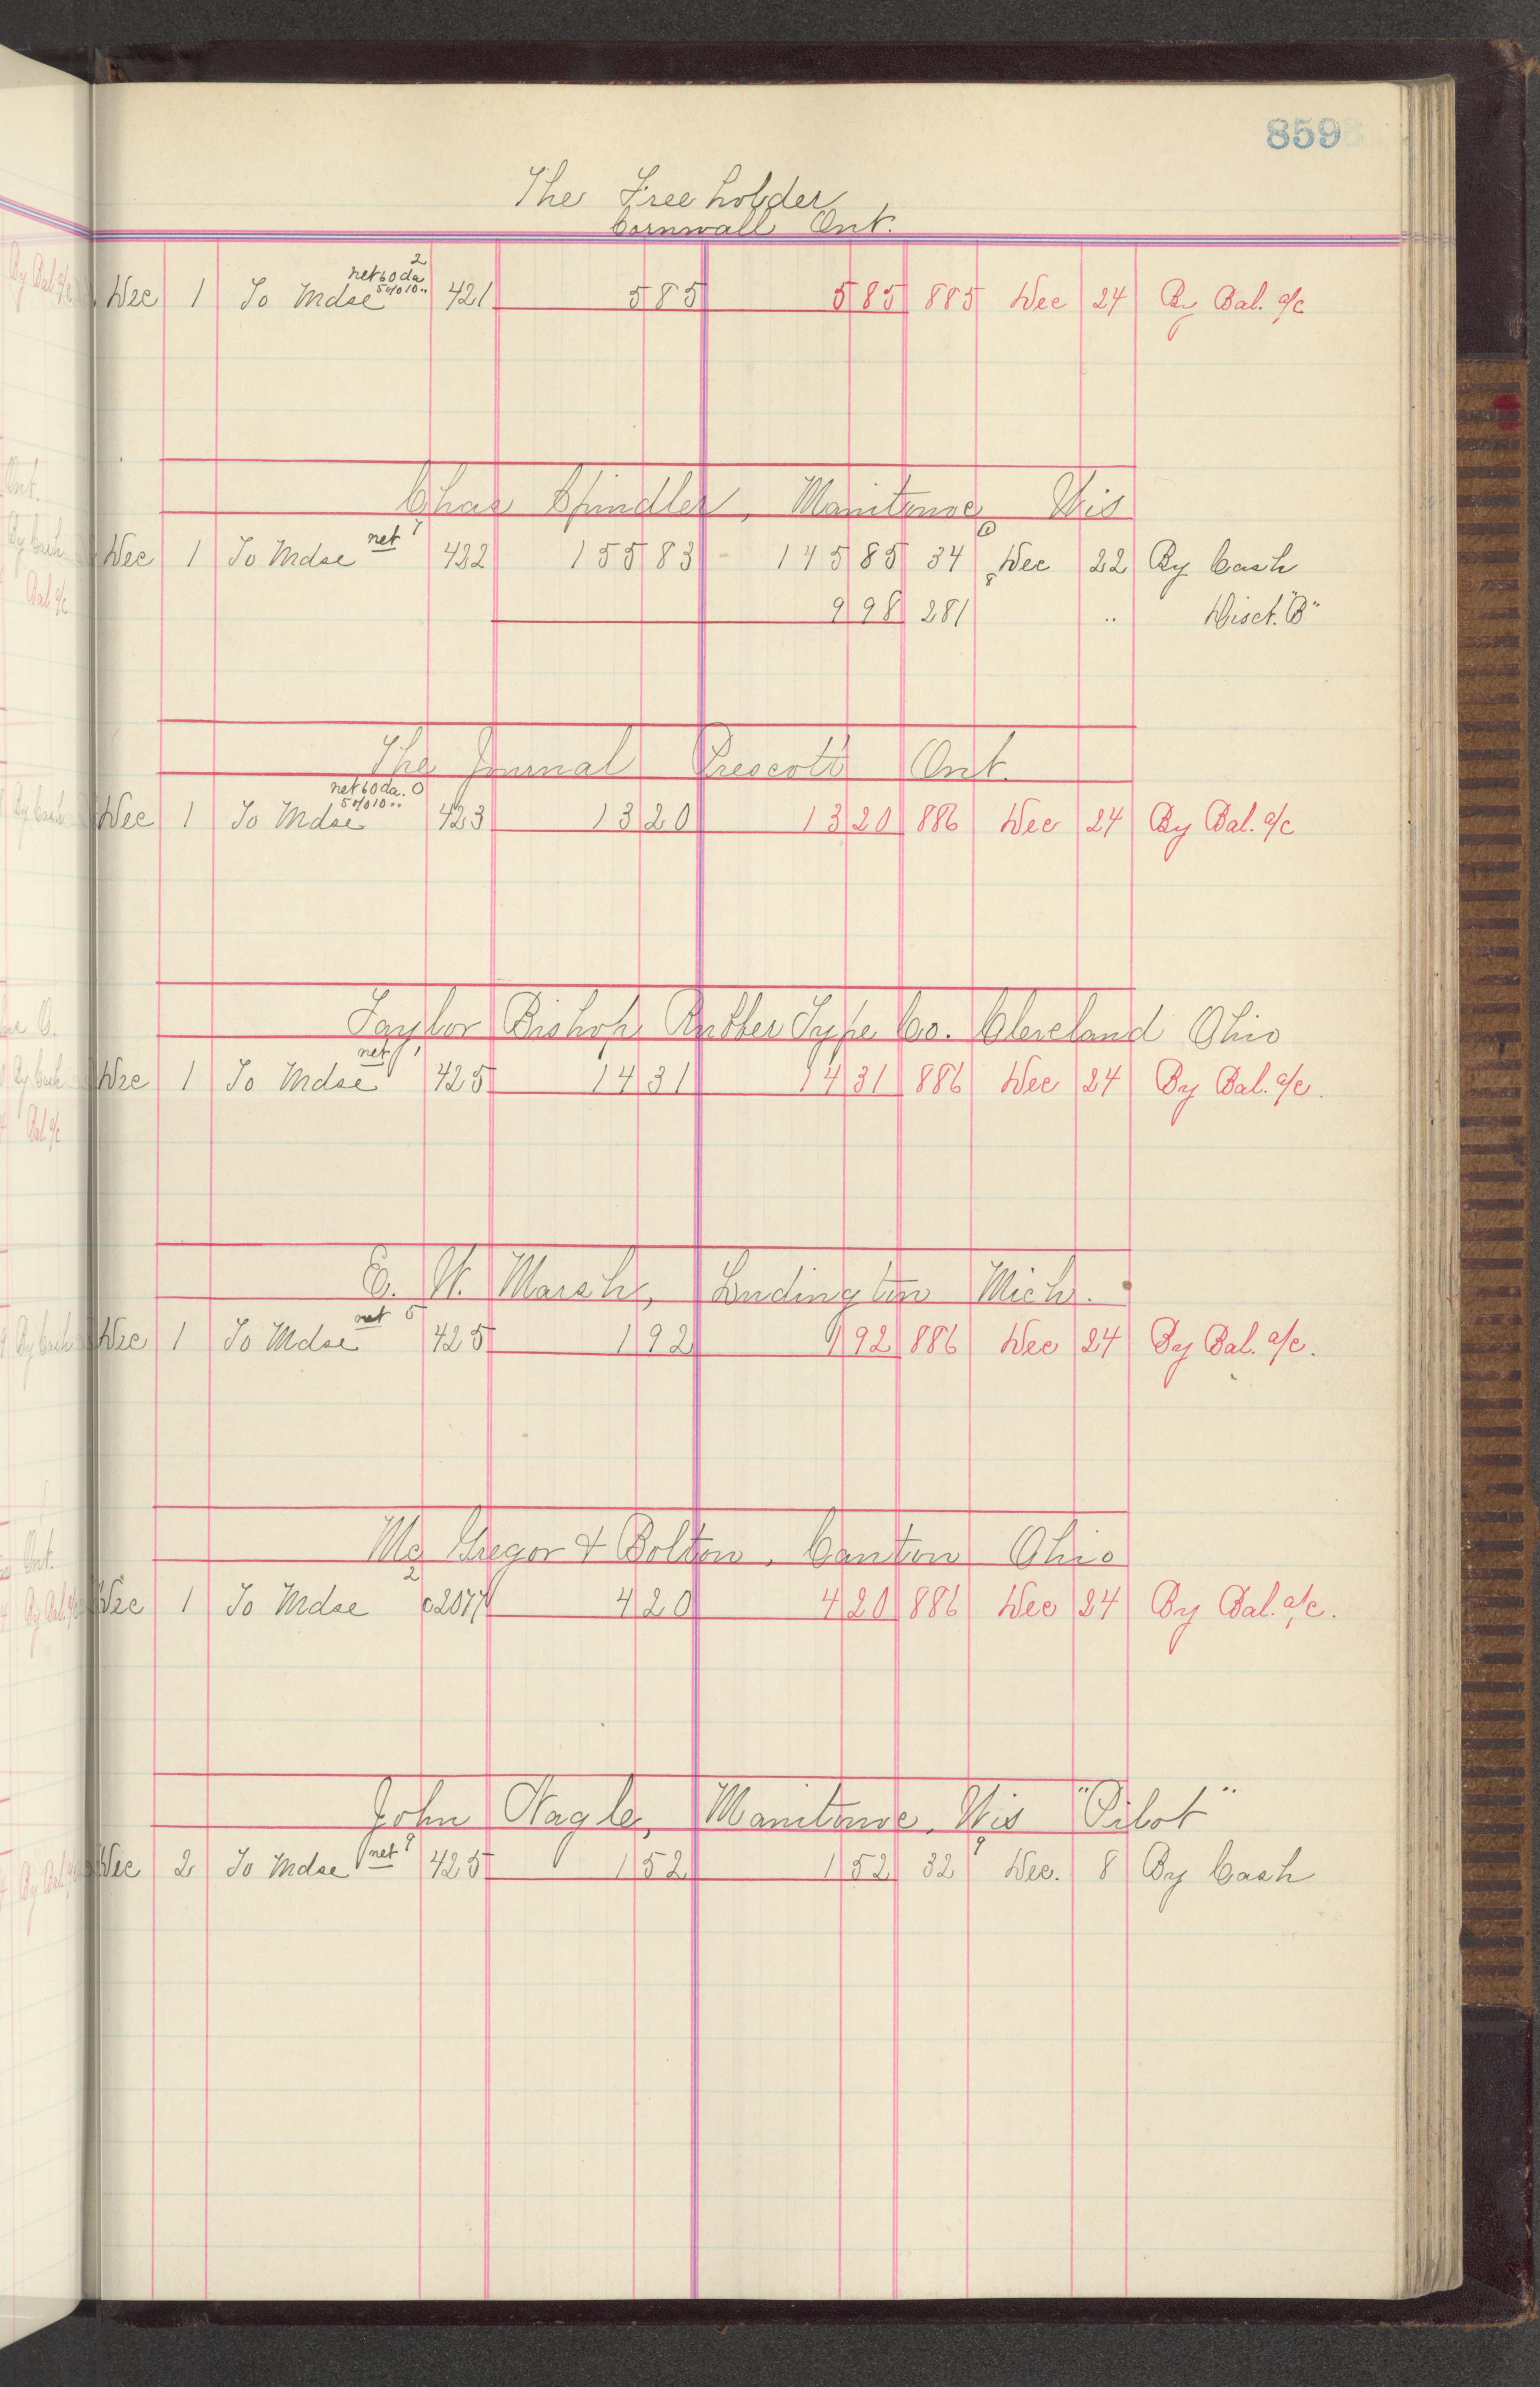 859
The Freeholder
Cornwall Ont.
2
net 60 da
5% 10 ..
Dec 1 To Mdse 421 5 85 5 85 885 Dec 24 By Bal. a/c
Chas Spindler, Manitowoc Wis
net 7 1
Dec 1 To Mdse 422 155 83 145 85 34 8 Dec 22 By Cash
9 98 281 .. Disct. "B"
The Journal Prescott Ont.
net 60 da. 0
5% 10 ..
Dec 1 To Mdse 423 13 20 13 20 886 Dec 24 By Bal. a/c
Taylor Bishop Rubber Type Co. Cleveland Ohio
net 1
Dec 1 To Mdse 425 14 31 14 31 886 Dec 24 By Bal. a/c.
E. W. Marsh, Ludington Mich.
net 5
Dec 1 To Mdse 425 1 92 1 92 886 Dec 24 By Bal. a/c.
Mc Gregor & Bolton, Canton Ohio
2
Dec 1 To Mdse c2077 4 20 4 20 886 Dec 24 By Bal. a/c.
John Nagle, Manitowoc, Wis "Pilot"
net 9 9
Dec 2 To Mdse 425 1 52 1 52 32 Dec. 8 By Cash